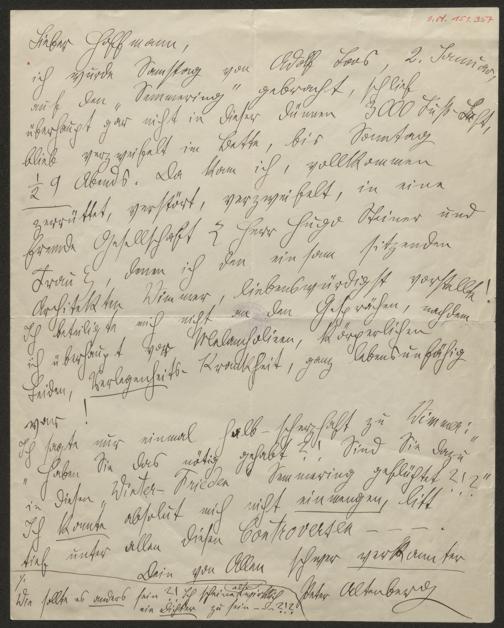 I.N. 151.357
Lieber Hoffmann,
ich wurde Samstag von Adolf Loos, 2. Januar,
auf den „Semmering" gebracht, schlief
überhaupt gar nicht in dieser dünnen 3000 Fuß-Luft,
blieb verzweifelt im Bette, bis Sonntag
½ 9 Abends. Da kam ich, vollkommen
zerrüttet, verstört, verzweifelt, in eine
fremde Gesellschaft { Herr Hugo Steiner und
Frau }, denen ich den einsam sitzenden
Architekten Wimmer, liebenswürdigst vorstellte!
Ich beteiligte mich nicht an den Gesprächen, nachdem
ich überhaupt vor Melancholieen, körperlichen
Leiden, Verlegenheits-Krankheit, ganz lebensunfähig
war!
Ich sagte nur einmal halb-scherzhaft zu Wimmer:
„Haben Sie das nötig gehabt?! Sind Sie dazu
in diesen „Winter-Frieden" Semmering geflüchtet?!?"
Ich konnte absolut mich nicht einmengen, litt
tief unter allen diesen Controversen — — —.
Dein von Allen schwer verkannter
Peter Altenberg
Wie sollte es anders sein?! Ich scheine also wirklich
ein Dichter zu sein —